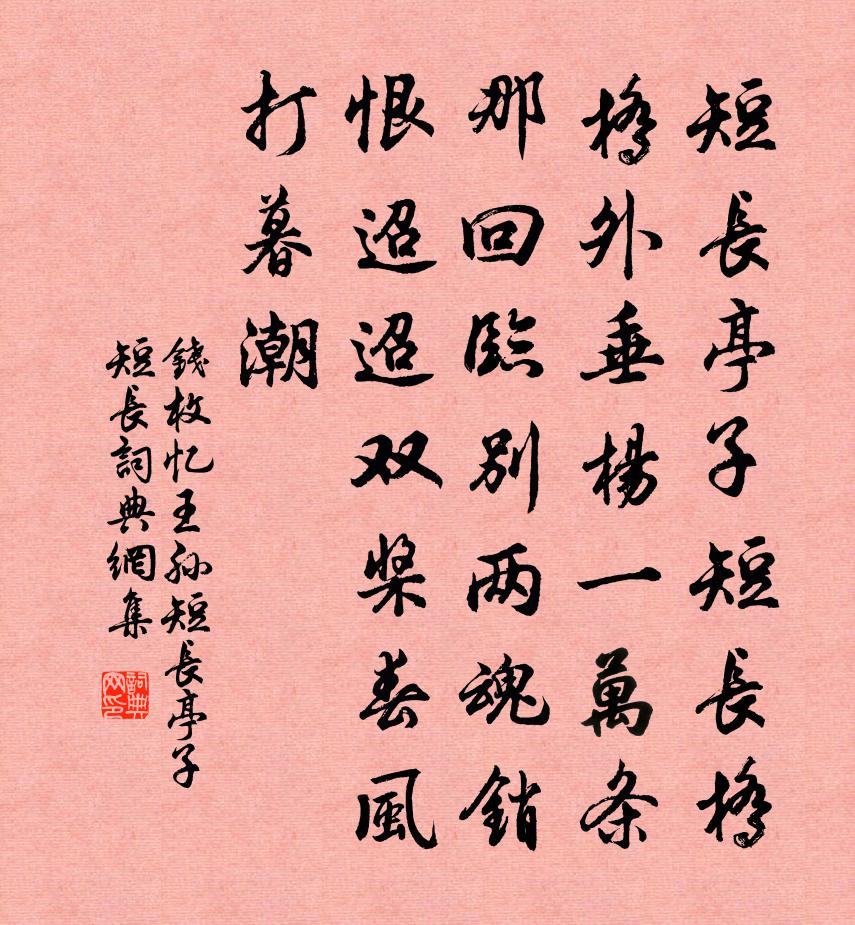 短長亭子短長橋
橋外垂楊一萬条
那回臨別两魂銷
恨迢迢双槳春風
打暮潮
錢枚忆王孙短長亭子
短長詞典網集
詞典网印